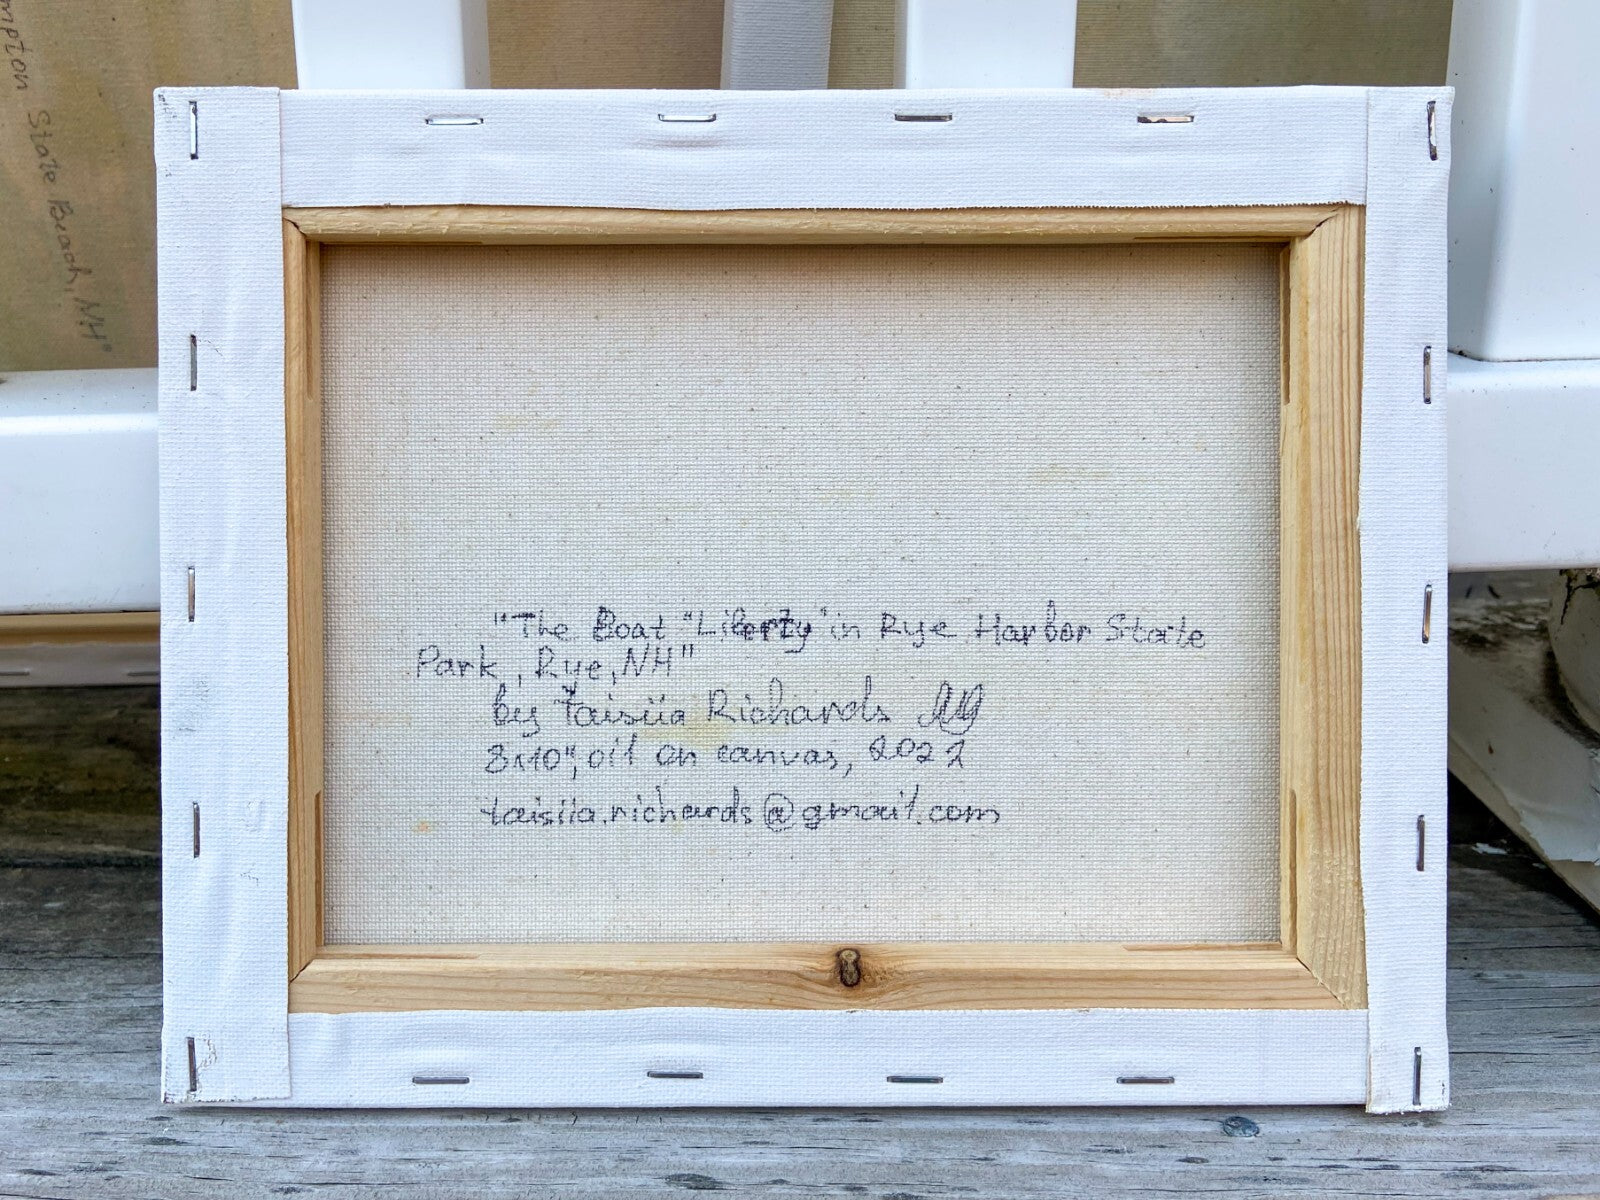 mpton State Beach, NH"
"The Boat "Liberty" in Rye Harbor State
Park, Rye, NH"
by Taisiia Richards
8x10", oil on canvas, 2022
taisiia.richards@gmail.com